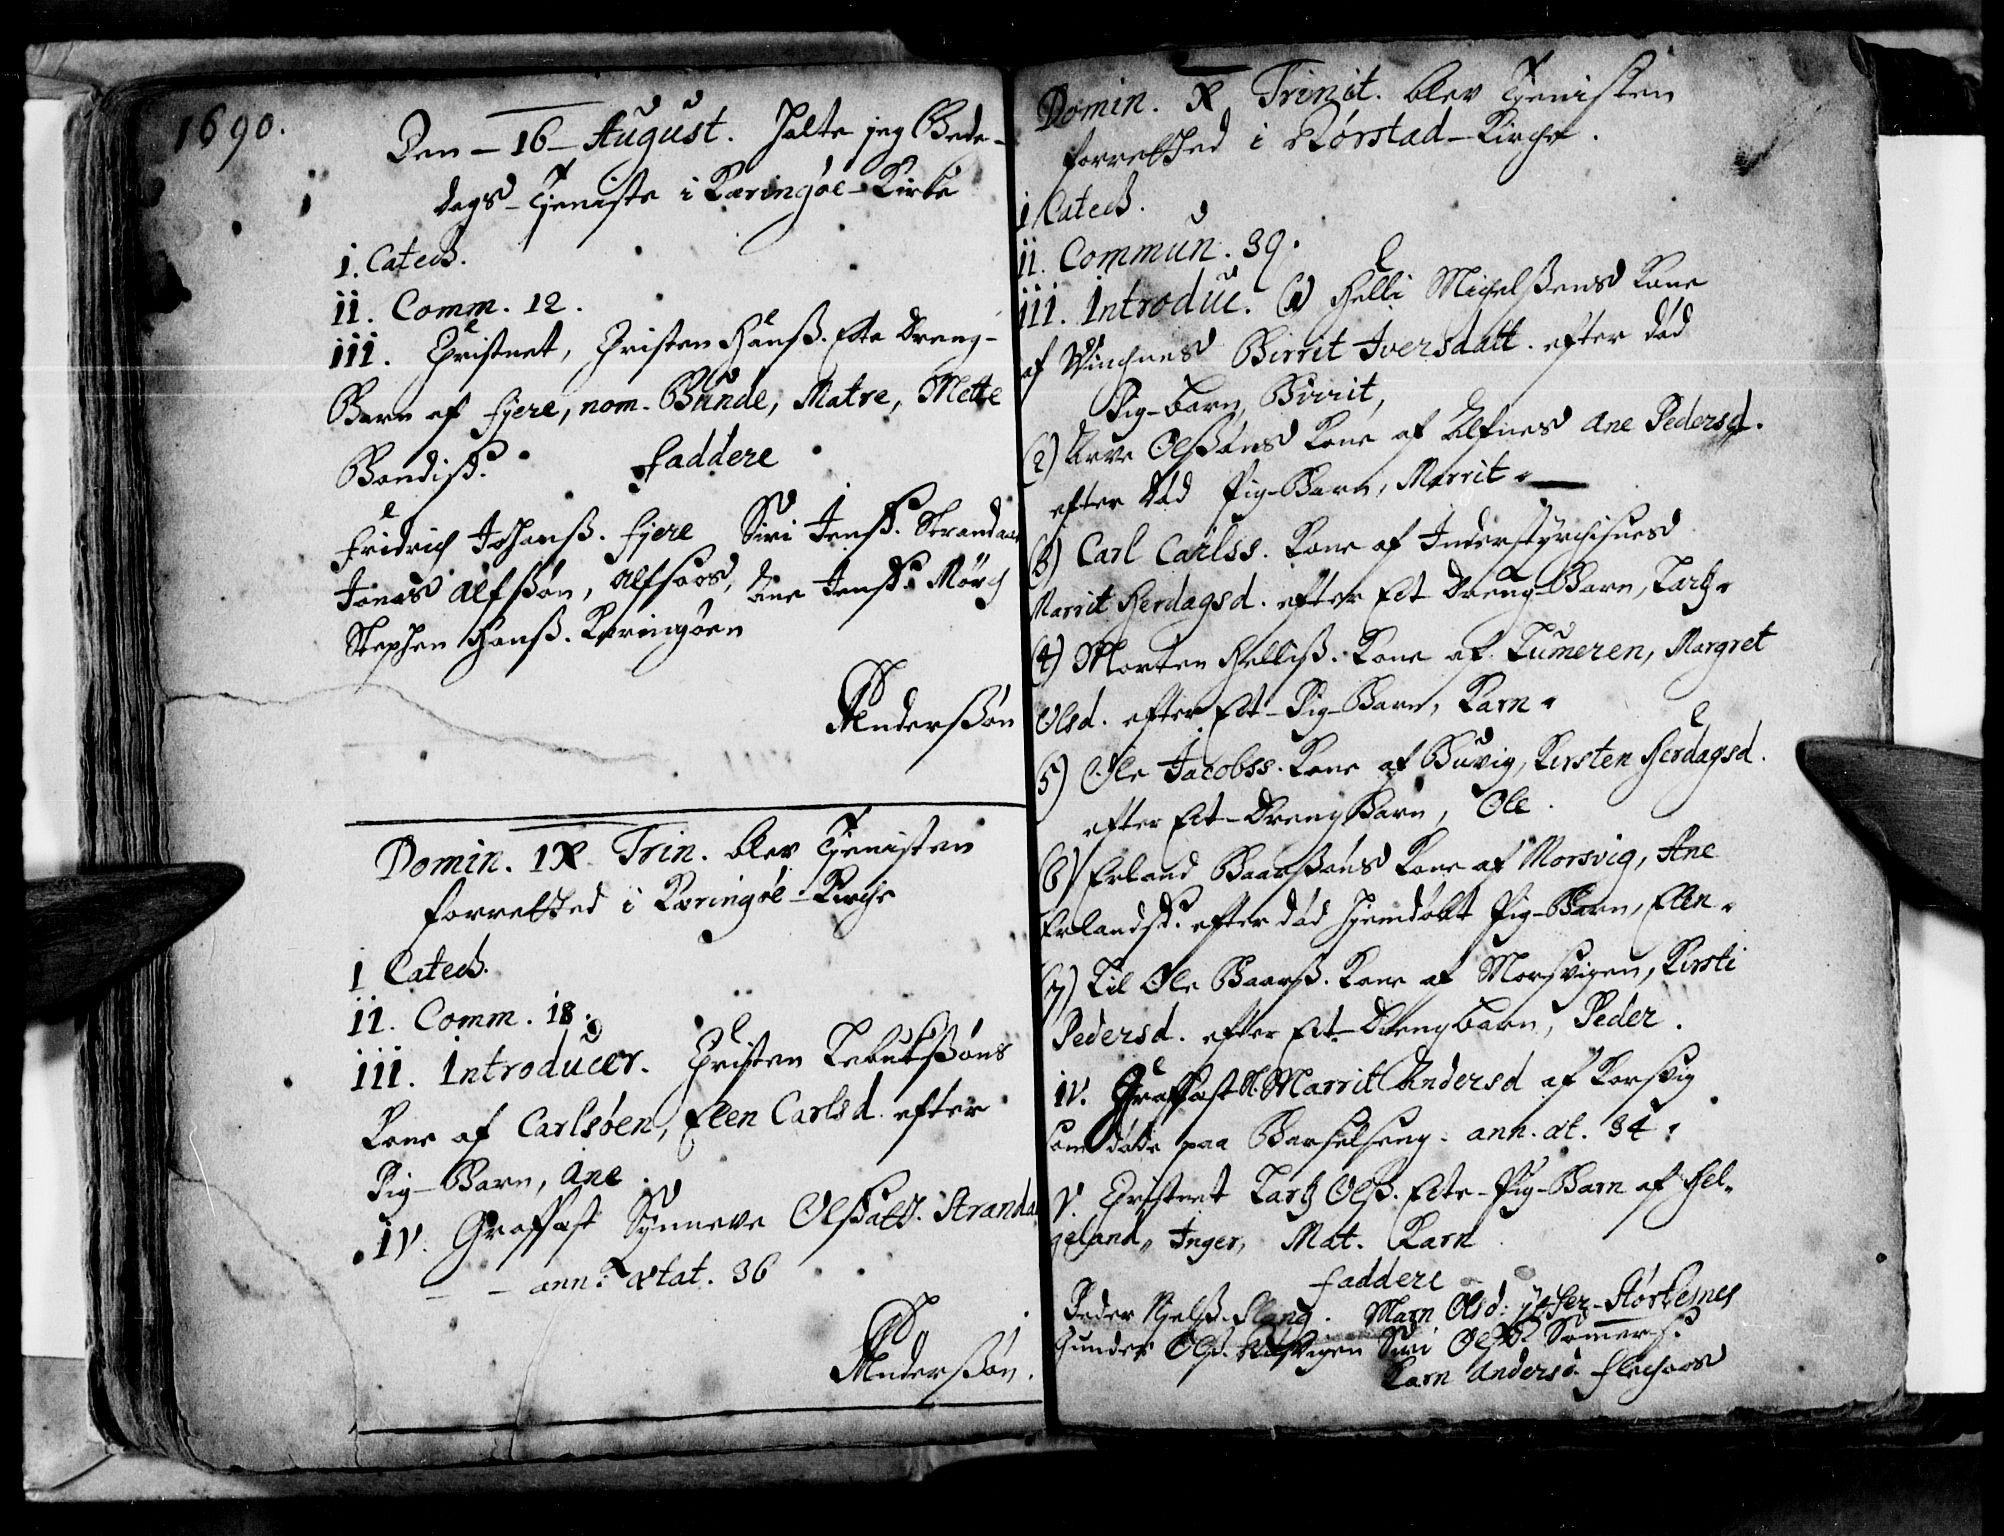 1690.
Den – 16 – August. Holte jeg Bede-
dags – Tjeniste i Kæringøe – Kirke
i. Catech.
ii. Comm. 12.
iii. Christnet, Christen Hanß. Ecte Dreng-
Barn af Fjere, nom. Bunde, Matre, Mette
Bondisd.
Faddere
Fridrich Johanß. Fjere Siri Jensd. Strandaa
Jonas Alfssøn, Alfsoos, Ane Jensd. Mørch
Stephen Hanß. Kæringøen
Anderssøn
Domin. IX Trin. blev Tjenisten
forretthed i Kæringøe – Kirche
i Catech.
ii. Comm. 18.
iii. Introducer. Christen
Kone af Carlsøen, Elen Carlsd. efter
Pig – Barn, Ane.
iv. Graffast Synneve Olsdatt. Stranda
ann: ætat. 36
Anderssøn.
Domin. X Trinit. blev Tjenisten
forretthed i Rørstad – Kirche.
i Catech.
ii. Commun. 39.
iii. Introduc. (1) Helli Michelßens Kone
af Vinchnes Birrit Iversdatt. efter død
Pig – barn, Birrit,
(2) Arve Olssøns Kone af Elfnes Ane Pedersd.
efter død Pig – Barn, Marrit.
(3) Carl Carlss. Kone af
Marrit Herdagsd. efter Ect Dreng – Barn,
(4) Morten Helliß. Kone af Kumeren, Margret
Olsd. efter Ect – Pig – Barn, Karn.
5) Ole Jacobss. Kone af Buvig, Kirsten Herdagsd.
efter Ect – Dreng Barn, Ole.
(6) Erland Baarssøns Kone af Morsvig, Ane
Erlandsd. efter død Hjemdøbt Pig – Barn, Elen.
(7) Til Ole Baarß. Kone af Morsvigen, Kirsti
Pedersd. efter Ect – Drengbarn, Peder.
iv. Graffast Marrit Andersd af Korsvig
som døde paa Barselseng. ann. æt. 34.
v. Christnet Olß. Ecte – Pig – Barn af Hel-
geland, Inger, Mat. Karn
Faddere
Peder Nielß. Marn Olsd: Størkesnes
Gunder Olß. Siri Olsd. Sommers.
Karn Andersd.